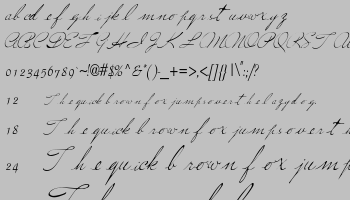 abcdefghijklmnopqrstuvwxyz
ABCDEFGHIJKLMNOPQRST
0123456789~!@#$%^&*()-_+=>,<[]{}|\":;/?
12 The quick brown fox jumps over the lazy dog.
18 The quick brown fox jumps overt
24 The quick brown fox jump